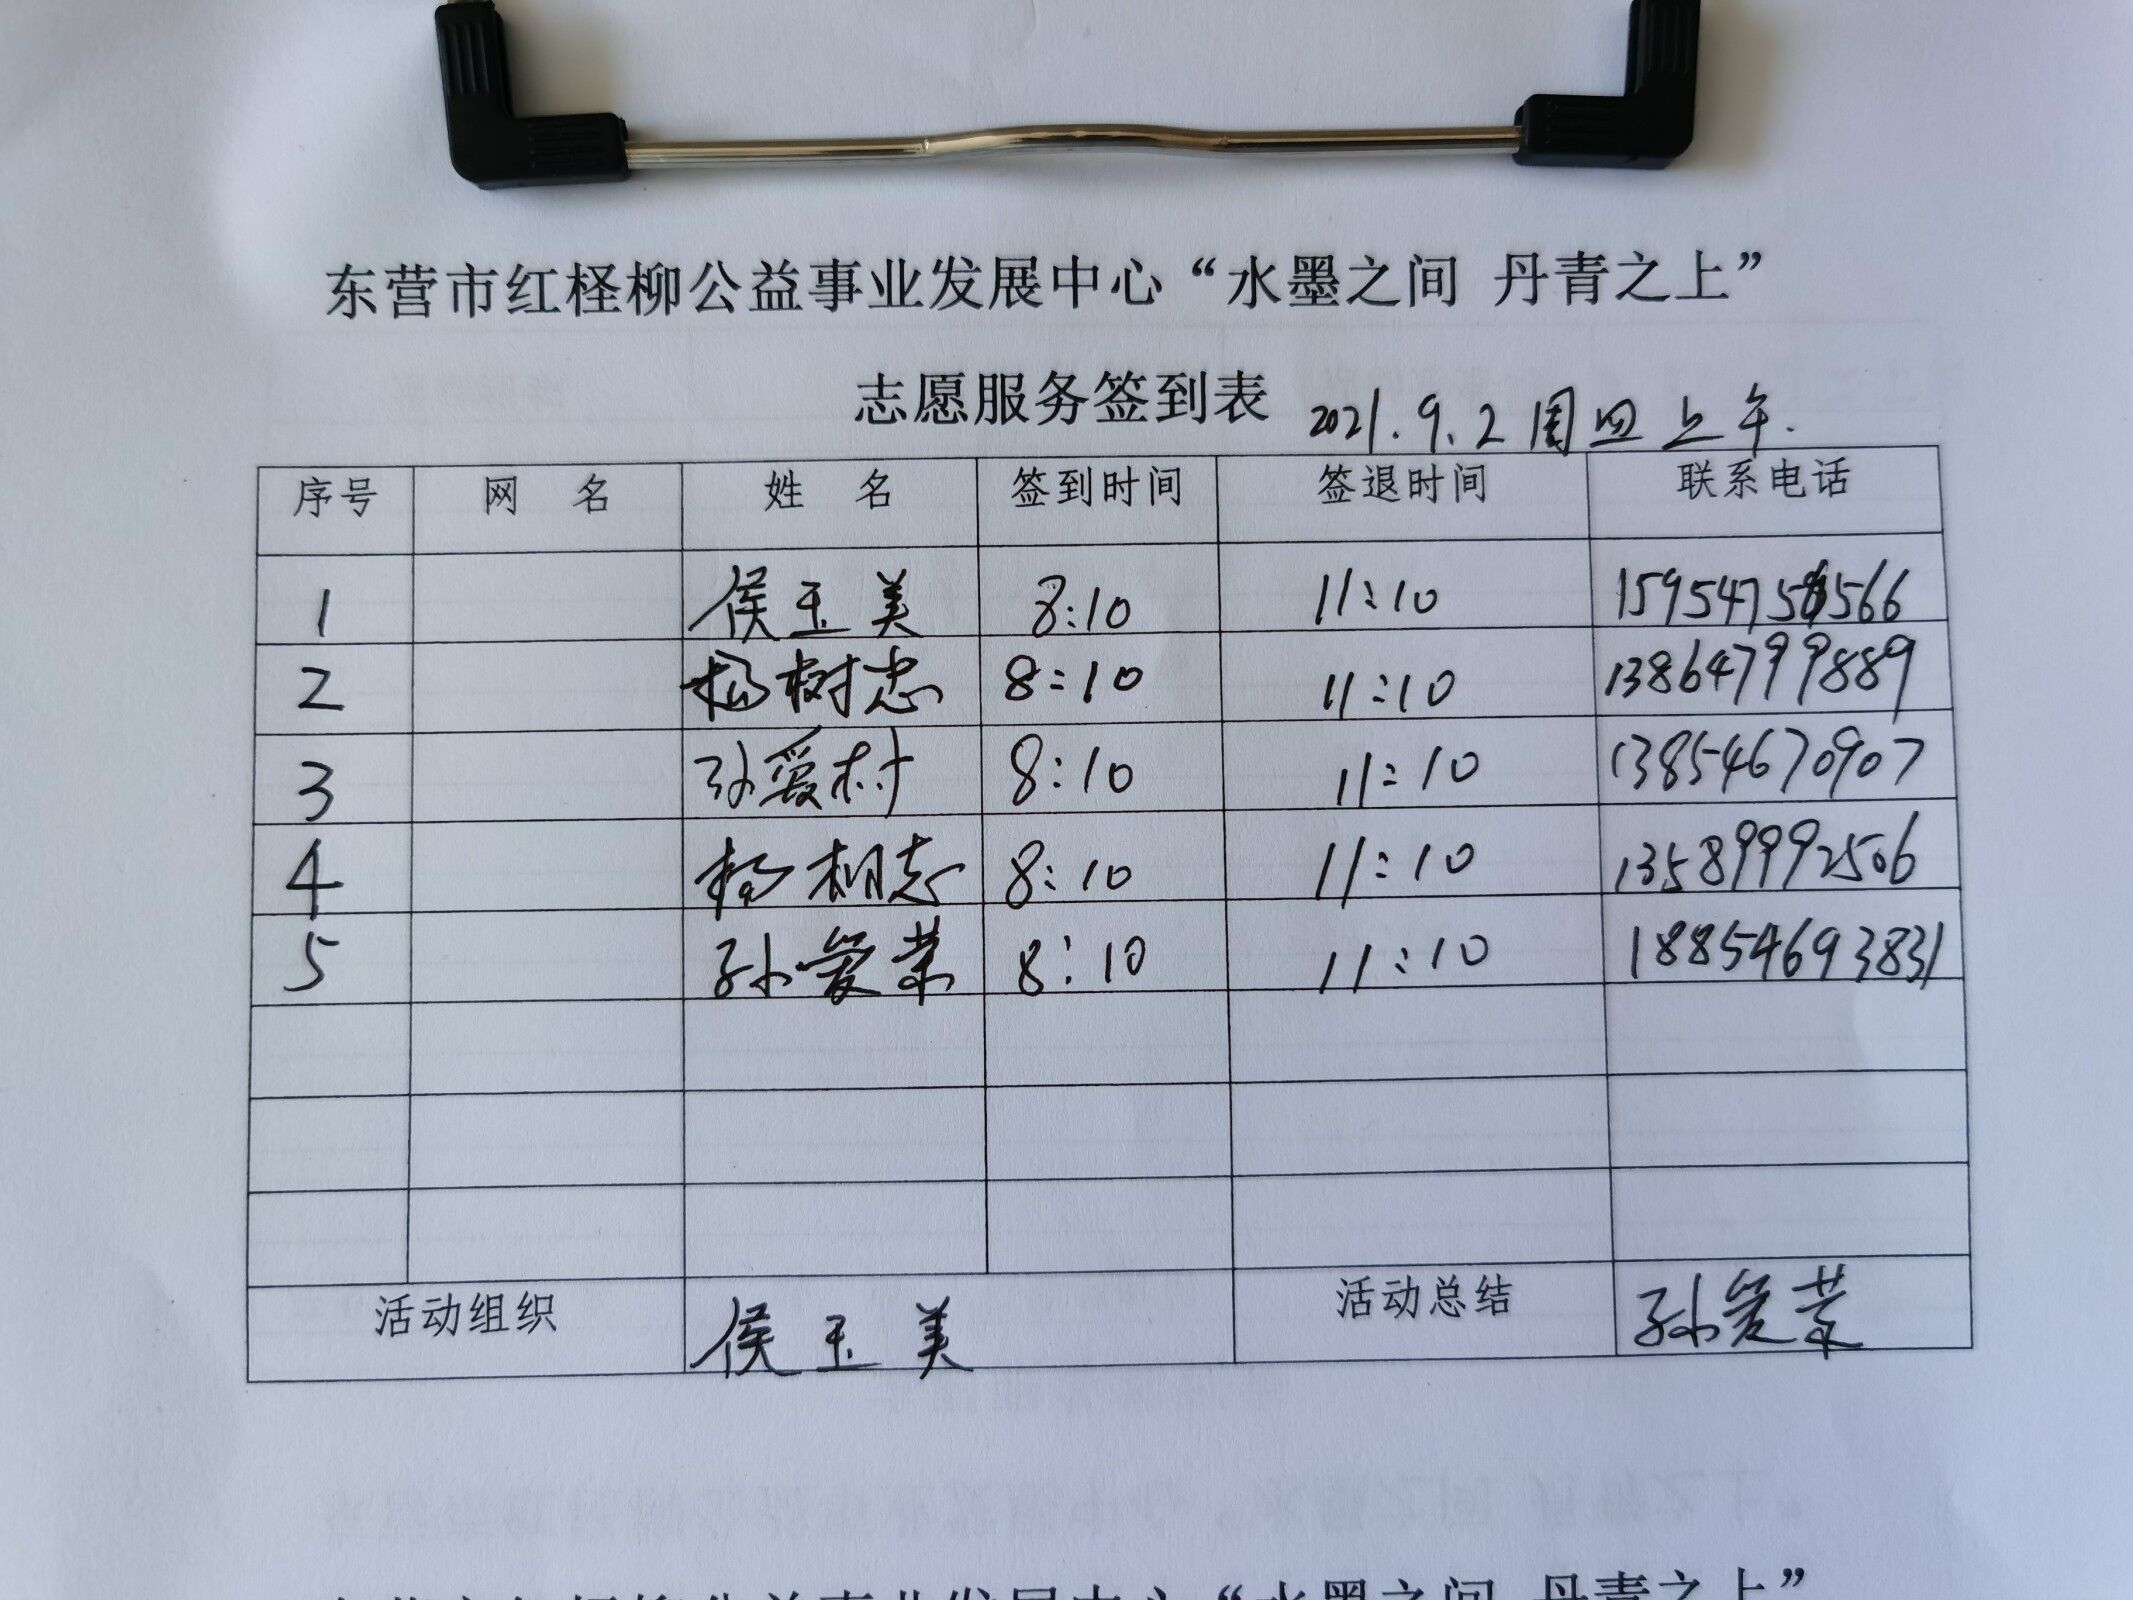 东营市红柽柳公益事业发展中心“水墨之间 丹青之上”
志愿服务签到表 2021.9.2周四上午.
序号 网 名 姓 名 签到时间 签退时间 联系电话
1 侯玉美 8:10 11:10
2 杨树忠 8:10 11:10 13864799889
3 孙爱村 8:10 11:10 13854670907
4 杨相志 8:10 11:10 13589992506
5 孙爱荣 8:10 11:10 18854693831
活动组织 侯玉美 活动总结 孙爱荣
“水墨之间 丹青之上”